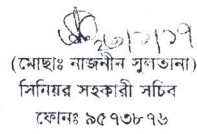 ২৬/১/১৭
(মোছাঃ নাজনীন সুলতানা)
সিনিয়র সহকারী সচিব
ফোনঃ ৯৫৭৩৮৭৬